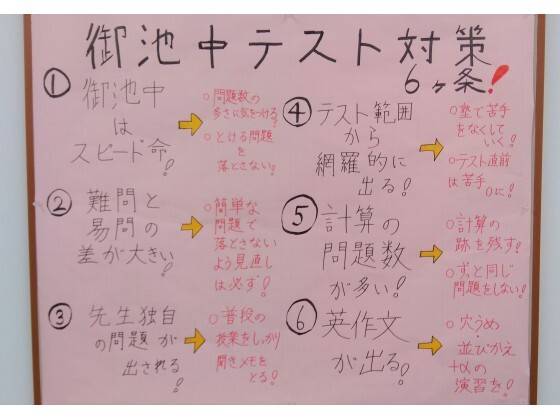 御池中テスト対策
6ヶ条!
① 御池中
は
スピード命!
○問題数の
多さに気をつける!
○とける問題
を
落とさない!
② 難問と
易問の
差が大きい!
○簡単な
問題で
落とさない
よう見直し
は必ず!
③ 先生独自
の問題が
出される!
○普段の
授業をしっかり
聞きメモを
とる!
④ テスト範囲
から
網羅的に
出る!
○塾で苦手
をなくして
いく!
○テスト直前
は苦手0に!
⑤ 計算の
問題数
が多い!
○計算の
跡を残す!
○ずっと同じ
問題をしない!
⑥ 英作文
が出る!
○穴うめ
並びかえ
+αの
演習を!